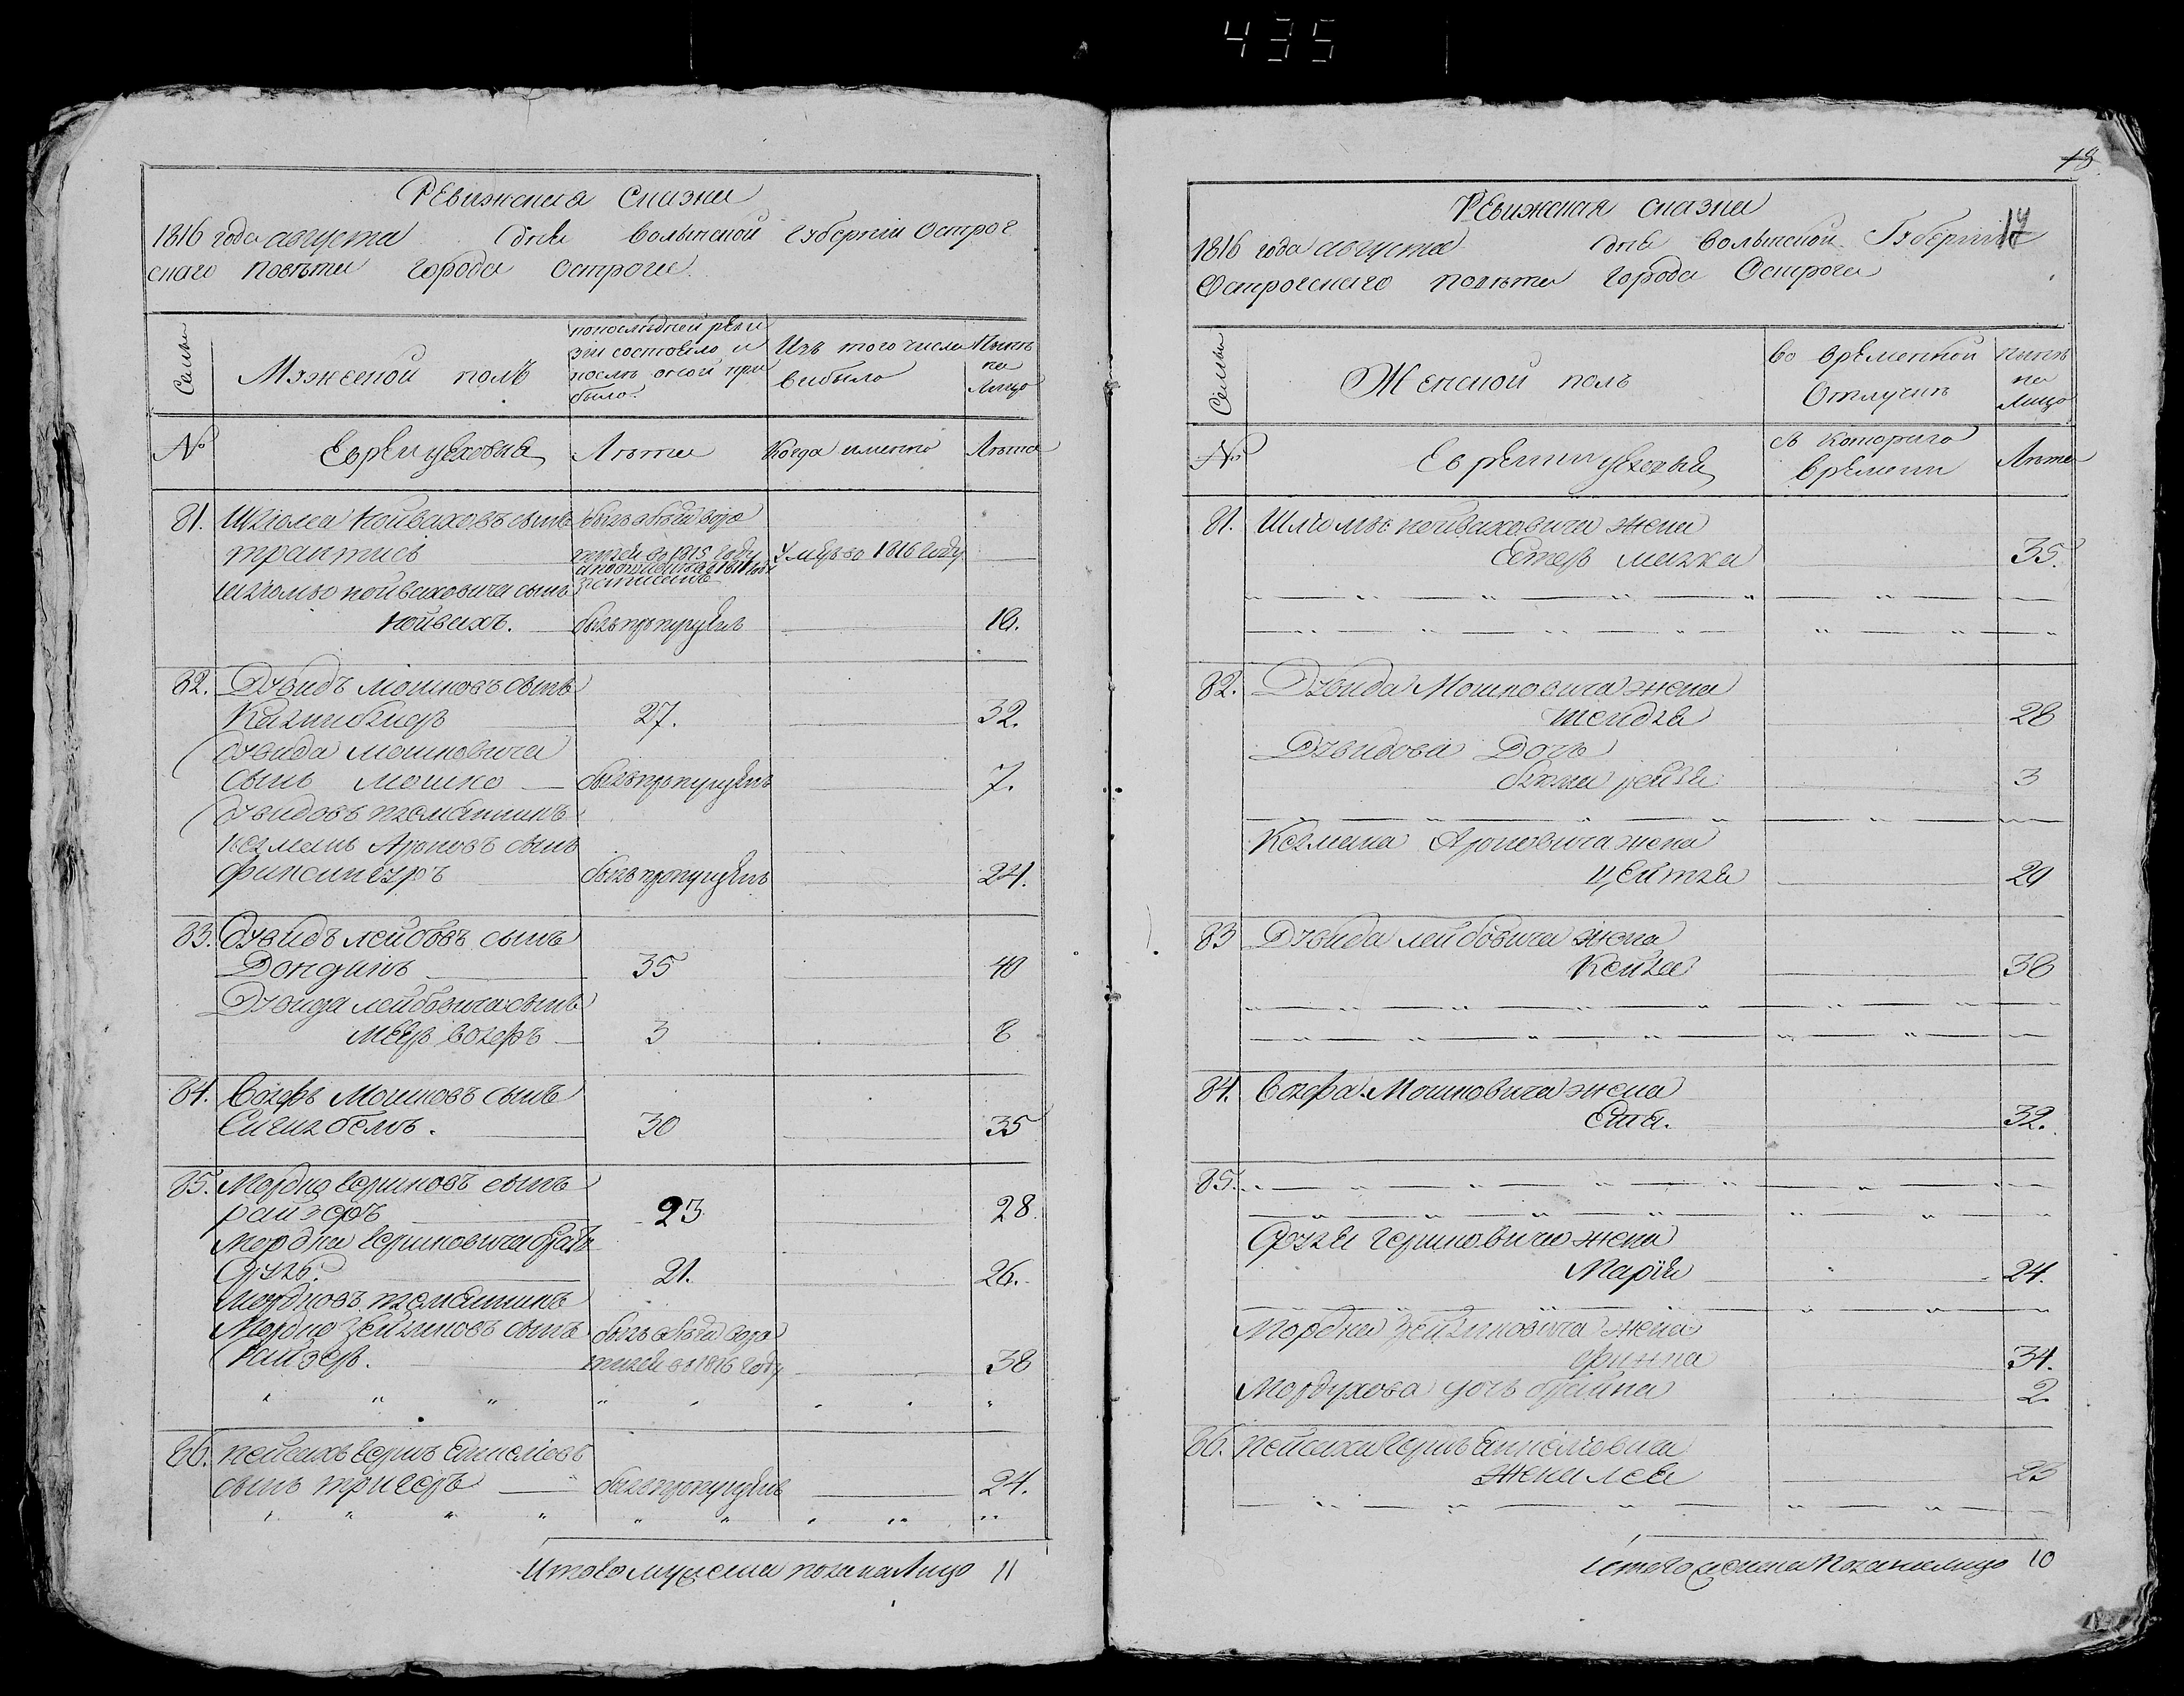 435
Ревижская сказка
1816 года августа дня Волынской губерніи Острог
скаго повѣта города Острога
Семьи
Мужеской полъ
по последней реви
зіи состояло и
после оной при
было
Изъ того числа
выбыло
Нынѣ
на
Лицо
№
Евреи цеховые
Лѣта
Когда именно
Лѣта
81. Шлiома Пойсаховъ сынъ
былъ
1815 году
умеръ во 1816 году
Шлiомы Пойсаховича сынъ
Пойсахъ. былъ пропущенъ 10.
82. Дувидъ Мошковъ сынъ
27. 32.
Дувида Мошковича
сынъ Мошко былъ пропущенъ 7.
Дувидовъ племянникъ
Калманъ Ароновъ сынъ
былъ пропущенъ 24.
83. Дувидъ Лейбовъ сынъ
35 40
Дувида Лейбовича сынъ
Меер Волфъ 3 8
84. Волфъ Мошковъ сынъ
30 35
85. Мордко Гершковъ сынъ
Райзеръ 23 28
Мордка Гершковича братъ
Сруль. 21. 26.
Мордковъ племянникъ
Мордко Зейликовъ сынъ
Райзеръ. 1816 году 38
86. Пейсахъ Гершъ Аншелiовъ
сынъ Тригеръ былъ пропущенъ 24.
Итого мужеска пола на лицо 11
18
17
Ревижская сказка
1816 года августа дня Волынской Губерніи
Острогскаго повѣта города Острога
Семьи
Женской полъ
Во временной
Отлучкѣ
нынѣ
на
Лицо
№
Евреики цеховыя
съ котораго
времени
Лѣта
81. Шлiомы Пойсаховича жена
Естер Малка 35.
82. Дувида Мошковича жена
Шендля 28
Дувидова Дочь
Рейзя 3
Калмана Ароновича жена
Цейтля 29
83 Дувида Лейбовича жена
Кейля 38
84. Волфа Мошковича жена
Етя. 32.
85.
Сруля Гершковича жена
Марія 24.
Мордка Зейликовича жена
Фрижа 34.
Мордухова дочь Брайна 2.
86. Пейсаха Герша Аншелiовича
жена Лея 23
Итого женска пола на лицо 10